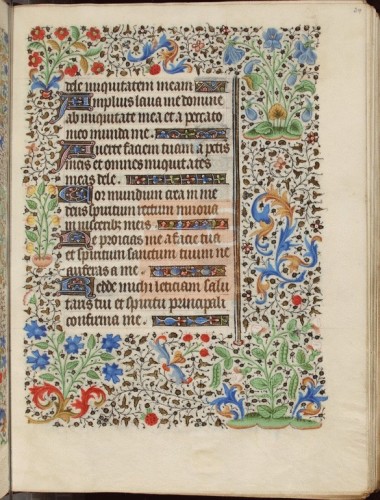 24
dele iniquitatem meam
Amplius lava me domine
ab iniquitate mea et a peccato
meo munda me.
Averte faciem tuam a petis
meis et omnes iniquitates
meas dele.
Cor mundum crea in me
deus spiritum rectum innova
in visceribz meis
Ne proicias me a facie tua
et spiritum sanctum tuum ne
auferas a me.
Redde michi leticiam salu
taris tui et spiritu principali
confirma me.